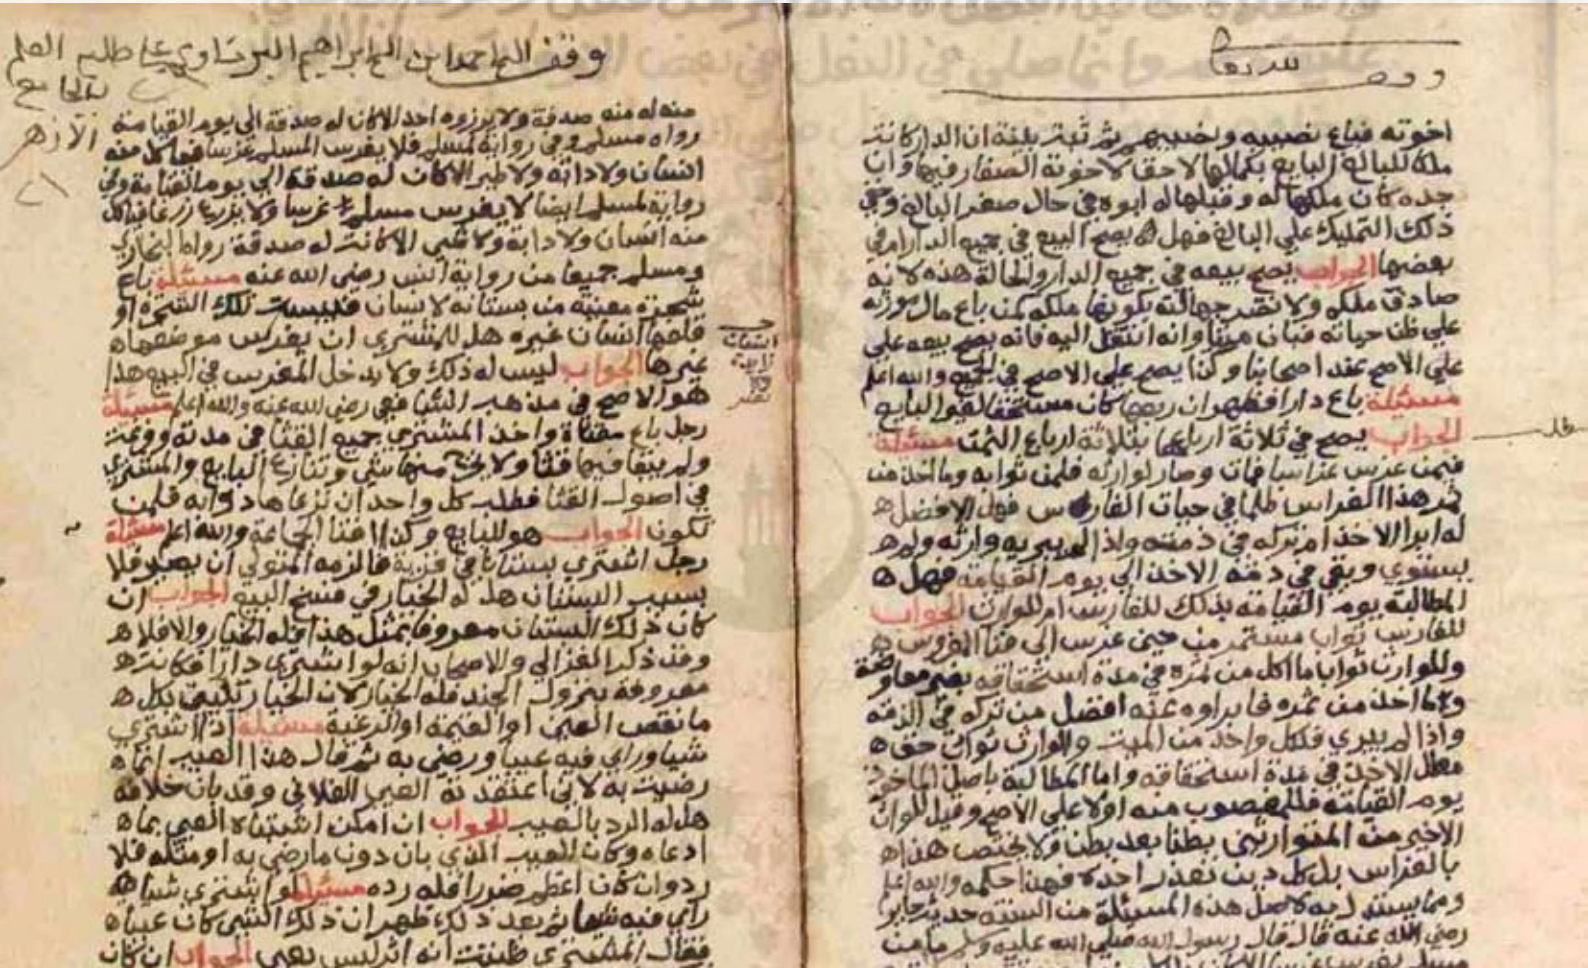 وقف لله تعالى
اخوته فباع نصيبه ونصيبهم ثم ثبت ببينة ان الدار كانت
ملكا للبالغ البايع بكمالها لا حق لاخوته الصغار فيها وان
جده كان ملكها له وقبلها له ابوه في حال صغر البالغ وفي
ذلك التمليك علي البالغ فهل يصح البيع في جميع الدار ام في
بعضها الجواب يصح بيعه في جميع الدار والحالة هذه لانه
صادف ملكه ولا تضر جهالته بكونها ملكه كمن باع مال مورثه
علي ظن حياته فبان ميتا وانه انتقل اليه فانه يصح بيعه علي
علي الاصح عند اصحابنا وكذا يصح علي الاصح في الجميع والله اعلم
مسئلة باع دارا فظهر ان ربعها كان مستحقا لغير البايع
الجواب يصح في ثلاثة ارباعها بثلاثة ارباع الثمن مسئلة
فيمن غرس غراسا فمات وصار لوارثه فلمن ثوابه وما اخذ من
ثمر هذا الغراس ظلما في حيات الغارس فهل الافضل
له ابرا الاخذ ام تركه في ذمته واذا لم يبريه وارثه ولم
يستوفي وبقي في ذمة الاخذ الي يوم القيامة فهل
المطالبة يوم القيامة بذلك للغارس ام للوارث الجواب
للغارس ثواب مستمر من حين غرس الى فنا المغروس
وللوارث ثواب ما اكل من ثمره في مدة استحقاقه بغير معاوضة
وما اخذ من ثمره فابراوه عنه افضل من تركه في الذمة
واذا لم يبري فلكل واحد من الميت والوارث ثواب حق
مطل الاخذ في مدة استحقاقه واما المطالبة باصل الماخوذ
يوم القيامة فللمغصوب منه اولا علي الاصح وقيل للوارث
الاخير من المتوارثين بطنا بعد بطن ولا يختص هذا
بالغراس بل كل دين تعذر اخذه فهذا حكمه والله اعلم
ومما يستدل به لاصل هذه المسئلة من السنة حديث جابر
رضي الله عنه قال قال رسول الله صلى الله عليه وسلم ما من
وقف الحاج احمد ابن الحاج ابراهيم علي طلبة العلم
بالجامع
الازهر
منه له منه صدقة ولا يرزوه احد الا كان له صدقة الي يوم القيامة
رواه مسلم وفي رواية لمسلم فلا يغرس المسلم غرسا فياكل منه
انسان ولا دابة ولا طير الا كان له صدقة الي يوم القيامة وفي
رواية لمسلم ايضا لا يغرس مسلم غرسا ولا يزرع زرعا فياكل
منه انسان ولا دابة ولا شي الا كانت له صدقة رواه البخاري
ومسلم جميعا من رواية انس رضى الله عنه مسئلة باع
شجرة معينة من بستانه لانسان فيبست تلك الشجرة او
قلعها انسان غيره هل للمشتري ان يغرس موضعها
غيرها الجواب ليس له ذلك ولا يدخل المغرس في البيع هذا
هو الاصح في مذهب الشافعي رضي الله عنه والله اعلم مسئلة
رجل باع مقثاة واخذ المشتري جميع القثا في مدته وفرغت
ولم يبقا فيها قثا ولا يخرج منها شي وتنازع البايع والمشتري
في اصول القثا فطلب كل واحد ان ترعاها دوابه فلمن
تكون الجواب هو للبايع وكذا افتا الجماعة والله اعلم مسئلة
رجل اشتري بستانا في قرية فالزمه المتولي ان يصير فلاحا
بسبب البستان هل له الخيار في فسخ البيع الجواب ان
كان ذلك البستان معروفا بمثل هذا فله الخيار والا فلا
وقد ذكر الغزالي والاصحاب انه لو اشتري دارا فكانت
معروفة بنزول الجند فله الخيار لان الخيار يثبت بكل
ما نقص العين او القيمة او الرغبة مسئلة اذا اشتري
شيا وراي فيه عيبا ورضي به ثم قال هذا العيب انما
رضيت به لاني اعتقدته العيب الفلاني وقد بان خلافه
هل له الرد بالعيب الجواب ان امكن اشتباه العيب بما
ادعاه وكان العيب الذي بان دون ما رضي به او مثله فلا
رد وان كان اعظم ضررا فله رده مسئلة لو اشتري شيا
راي فيه شيا ثم بعد ذلك ظهر ان ذلك الشي كان عيبا
فقال المشتري ظننت انه اثر ليس بعيب الجواب ان كان